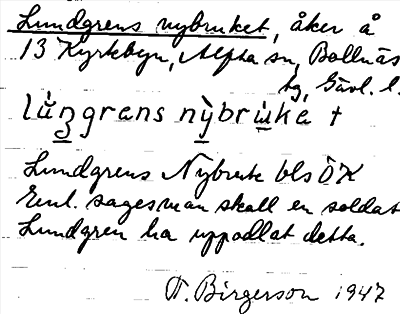 Lundgrens nybruket, åker å
13 Kyrkbyn, Alfta sn, Bollnäs
tg, Gävl. l.
lùŋgrens nỳbrùke +
Lundgrens Nybruk bls ÖK
Enl. sagesman skall en soldat
Lundgren ha uppodlat detta.
T. Birgerson 1947